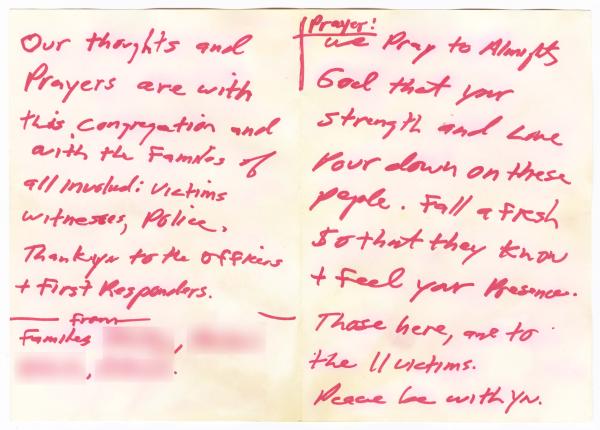 Our thoughts and
Prayers are with
this Congregation and
with the Familes of
all involvd: victims
witnesses, Police.
Thankyu to the officers
+ First Responders.
From
Familes
Prayer!
we Pray to Almighty
God that your
strength and Love
Pour down on these
people. Fall a fresh
so that they know
+ Feel your Presence.
Those here, and to
the 11 victims.
Peace be with Yu.